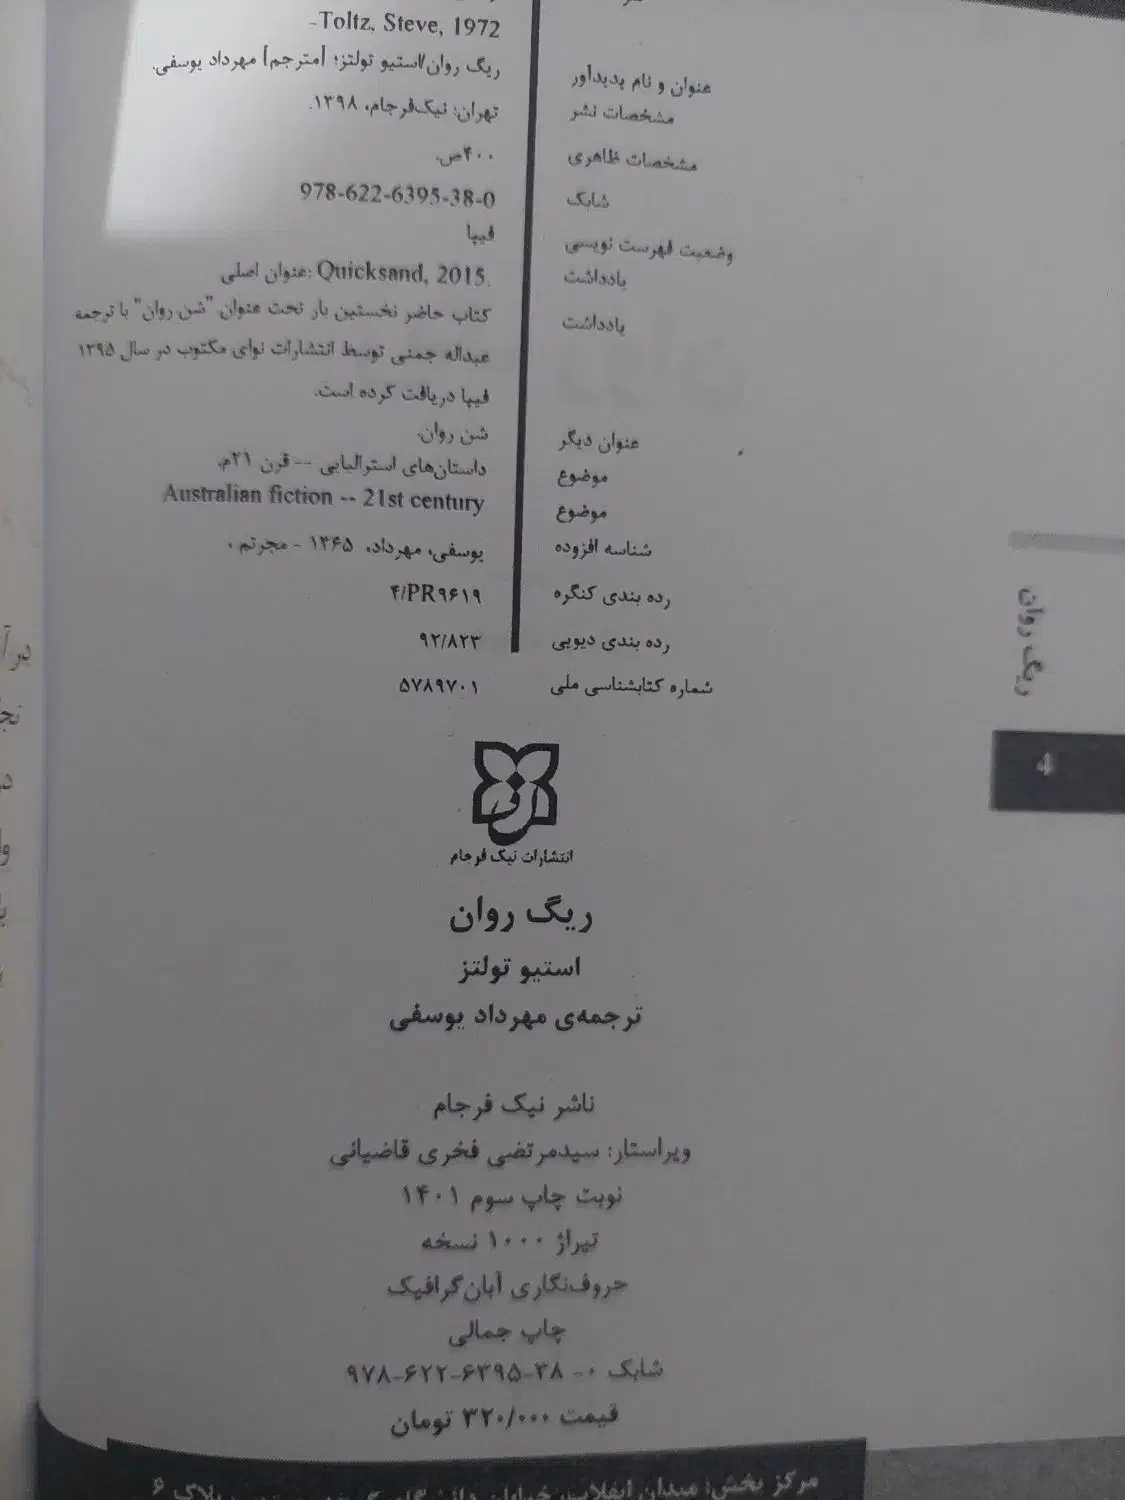 Toltz, Steve, 1972-
عنوان و نام پدیدآور ریگ روان/استیو تولتز؛ [مترجم] مهرداد یوسفی.
مشخصات نشر تهران: نیک‌فرجام، ۱۳۹۸.
مشخصات ظاهری ۴۰۰ص.
شابک 978-622-6395-38-0
وضعیت فهرست نویسی فیپا
یادداشت عنوان اصلی: Quicksand, 2015.
یادداشت کتاب حاضر نخستین بار تحت عنوان "شن روان" با ترجمه
عبداله جمنی توسط انتشارات نوای مکتوب در سال ۱۳۹۵
فیپا دریافت کرده است.
عنوان دیگر شن روان.
موضوع داستان‌های استرالیایی -- قرن ۲۱م.
موضوع Australian fiction -- 21st century
شناسه افزوده یوسفی، مهرداد، ۱۳۶۵ - مجرتم .
رده بندی کنگره PR۹۶۱۹/۴
رده بندی دیویی ۸۲۳/۹۲
شماره کتابشناسی ملی ۵۷۸۹۷۰۱
ریگ روان
4
انتشارات نیک فرجام
ریگ روان
استیو تولتز
ترجمه‌ی مهرداد یوسفی
ناشر نیک فرجام
ویراستار: سیدمرتضی فخری قاضیانی
نوبت چاپ سوم ۱۴۰۱
تیراژ ۱۰۰۰ نسخه
حروف‌نگاری آبان‌گرافیک
چاپ جمالی
شابک ۰- ۳۸-۶۳۹۵-۶۲۲-۹۷۸
قیمت ۳۲۰/۰۰۰ تومان
مرکز پخش: میدان انقلاب، خیابان پلاک ۶